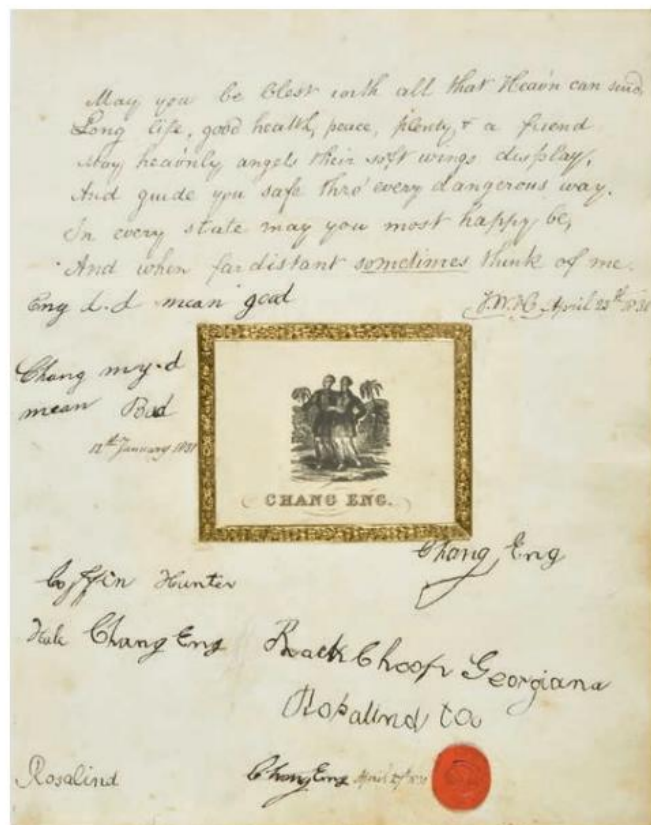 May you be blest with all that Heav'n can send,
Long life, good health, peace, plenty, & a friend
May heav'nly angels their soft wings display,
And guide you safe thro' every dangerous way.
In every state may you most happy be,
And when far distant sometimes think of me.
Eng d.d mean good
April 23th
Chang my.d
mean Bad
12th January 1831
CHANG ENG.
Chang Eng
Coffin Hunter
Hale Chang Eng
Rosalind
Georgiana
Rosalind
Chang Eng April 27th